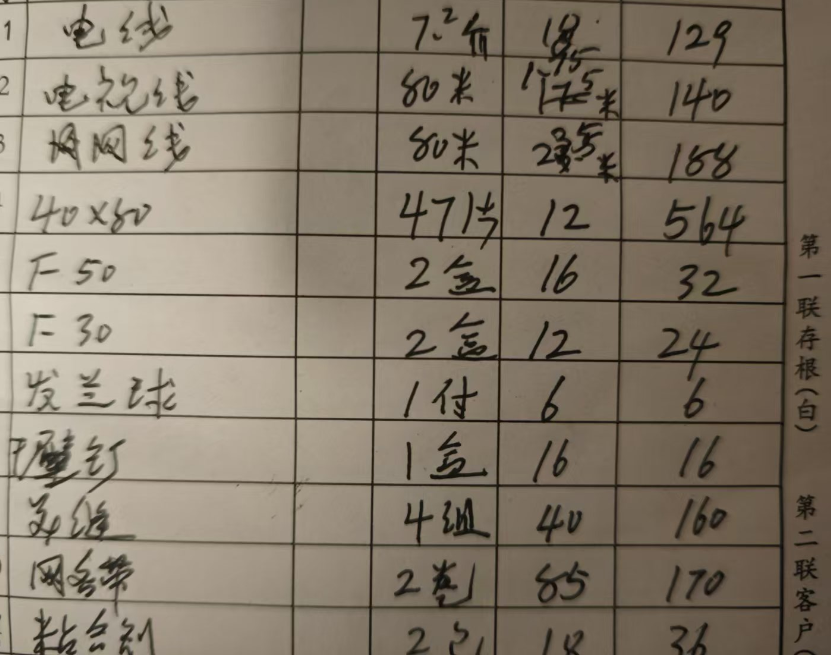 1 电线 7.2斤 18 129
2 电视线 80米 1.75米 140
3 网线 80米 2.35米 188
40×80 47片 12 564
F50 2盒 16 32
F30 2盒 12 24
发兰球 1付 6 6
壁钉 1盒 16 16
美缝 4组 40 160
网各带 2卷 85 170
粘合剂 2包 18 36
第一联存根(白)
第二联客户(